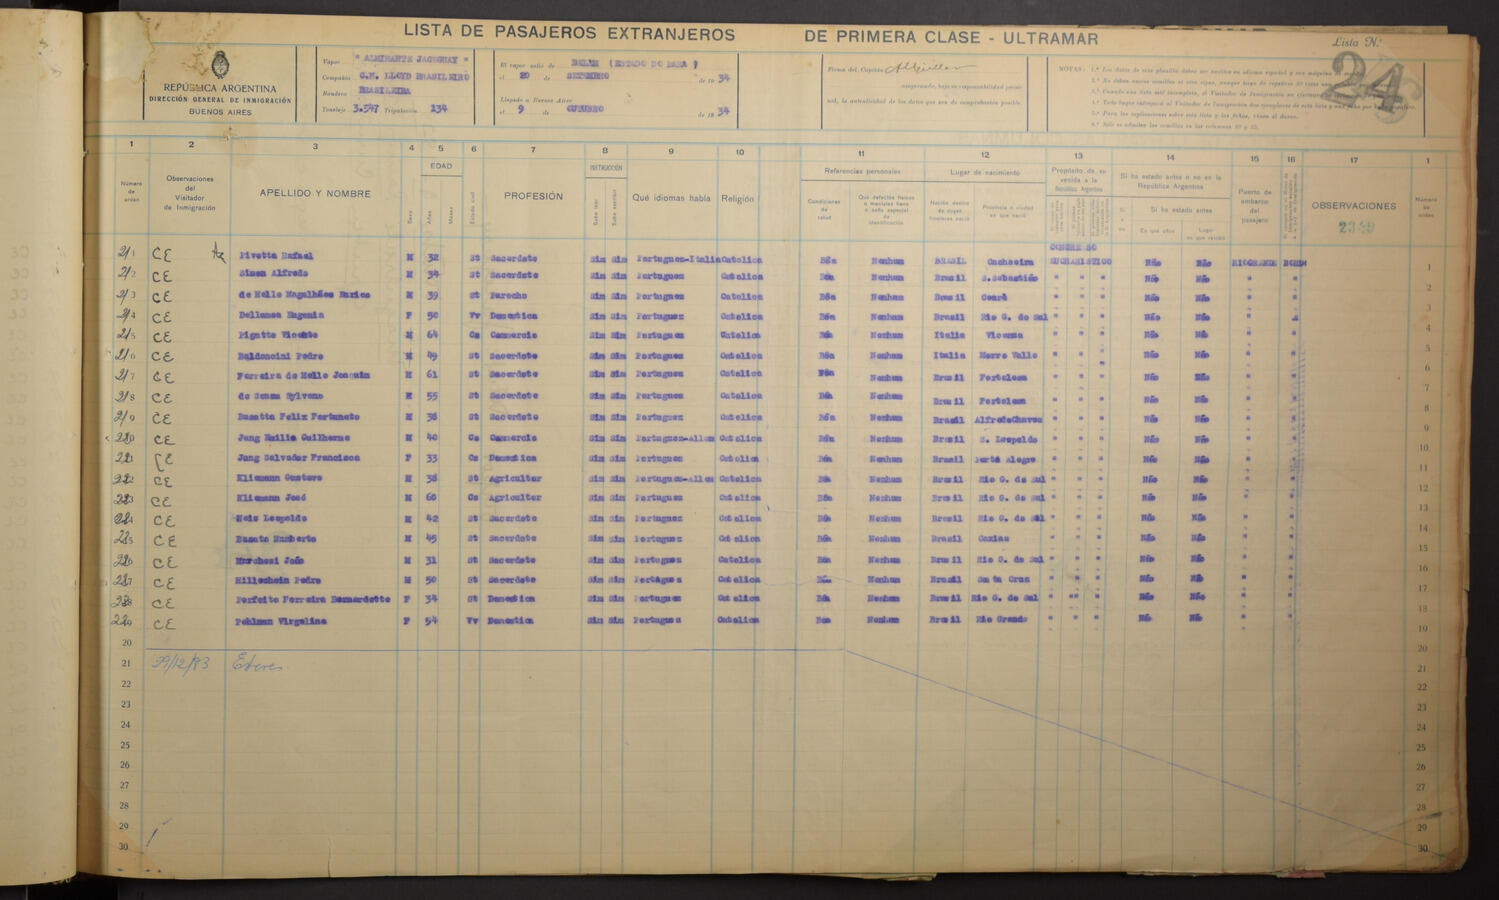 LISTA DE PASAJEROS EXTRANJEROS DE PRIMERA CLASE - ULTRAMAR
Lista N.º
24
REPÚBLICA ARGENTINA
DIRECCIÓN GENERAL DE INMIGRACIÓN
BUENOS AIRES
Vapor " ALMIRANTE JACEGUAY "
Compañía C.N. LLOYD BRASILEIRO
Bandera BRASILEIRA
Tonelaje 3.547 Tripulación 134
El vapor salió de BELEM (ESTADO DO PARA )
el 20 de SETEMBRO de 19 34
Llegado a Buenos Aires
el 9 de OUTUBRO de 19 34
Firma del Capitán
asegurando, bajo su responsabilidad personal, la autenticidad de los datos que son de comprobación posible.
NOTAS:
1 2 3 4 5 6 7 8 9 10 11 12 13 14 15 16 17 1
Número de orden
Observaciones del Visitador de Inmigración
APELLIDO Y NOMBRE
Sexo
EDAD
Años
Meses
Estado civil
PROFESIÓN
INSTRUCCIÓN
Sabe leer
Sabe escribir
Qué idiomas habla
Religión
Referencias personales
Condiciones de salud
Qué defectos físicos o mentales tiene o seña especial de identificación
Lugar de nacimiento
Nación dentro de cuyos límites nació
Provincia o ciudad en que nació
Propósito de su venida a la República Argentina
Si ha estado antes o no en la República Argentina
Si ha estado antes
En qué años
Lugar en que residió
Puerto de embarco del pasajero
OBSERVACIONES
2349
Número de orden
CONGRESO
211 CE Pivetta Rafael M 32 St Sacerdote Sim Sim Portuguez-Italia Catolica Bôa Nenhum BRASIL Cachoeira EUCHARISTICO Não Não RIOGRANDE BORDO 1
212 CE Simon Alfredo M 34 St Sacerdote Sim Sim Portuguez Catolica Bôa Nenhum Brasil S.Sebastião " " " Não Não " " 2
213 CE de Mello Magalhães Eurico M 39 St Parocho Sim Sim Portuguez Catolica Bôa Nenhum Brasil Ceará " " " Não Não " " 3
214 CE Dellamea Eugenia F 50 Vv Domestica Sim Sim Portuguez Catolica Bôa Nenhum Brasil Rio G. do Sul " " " Não Não " " 4
215 CE Pigatto Vicente M 64 Cs Comercio Sim Sim Portuguez Catolica Bôa Nenhum Italia Vicenza " " " Não Não " " 5
216 CE Baldoncini Pedro M 49 St Sacerdote Sim Sim Portuguez Catolica Bôa Nenhum Italia Morro Valle " " " Não Não " " 6
217 CE Ferreira de Mello Joaquim M 61 St Sacerdote Sim Sim Portuguez Catolica Bôa Nenhum Brasil Fortelesa " " " Não Não " " 7
218 CE de Souza Sylvano M 55 St Sacerdote Sim Sim Portuguez Catolica Bôa Nenhum Brasil Fortelesa " " " Não Não " " 8
219 CE Busatta Felix Fortunato M 38 St Sacerdote Sim Sim Portuguez Catolica Bôa Nenhum Brasil AlfredoChaves " " " Não Não " " 9
220 CE Jung Emilio Guilherme M 40 Cs Comercio Sim Sim Portuguez-Allem Catolica Bôa Nenhum Brasil S. Leopoldo " " " Não Não " " 10
221 CE Jung Salvador Francisca F 33 Cs Domestica Sim Sim Portuguez Catolica Bôa Nenhum Brasil Porto Alegre " " " Não Não " " 11
222 CE Kliemann Gustavo M 38 St Agricultor Sim Sim Portuguez-Allem Catolica Bôa Nenhum Brasil Rio G. do Sul " " " Não Não " " 12
223 CE Kliemann José M 60 Cs Agricultor Sim Sim Portuguez Catolica Bôa Nenhum Brasil Rio G. do Sul " " " Não Não " " 13
224 CE Neis Leopoldo M 42 St Sacerdote Sim Sim Portuguez Catolica Bôa Nenhum Brasil Rio G. do Sul " " " Não Não " " 14
225 CE Busato Humberto M 45 St Sacerdote Sim Sim Portuguez Catolica Bôa Nenhum Brasil Caxias " " " Não Não " " 15
226 CE Marchesi João M 31 St Sacerdote Sim Sim Portuguez Catolica Bôa Nenhum Brasil Rio G. do Sul " " " Não Não " " 16
227 CE Hilleshein Pedro M 50 St Sacerdote Sim Sim Portuguez Catolica Bôa Nenhum Brasil Santa Cruz " " " Não Não " " 17
228 CE Perfeito Ferreira Bernardette F 34 St Domestica Sim Sim Portuguez Catolica Bôa Nenhum Brasil Rio G. do Sul " " " Não Não " " 18
229 CE Pohlman Virgelina F 54 Vv Domestica Sim Sim Portuguez Catolica Bôa Nenhum Brasil Rio Grande " " " Não Não " " 19
20 20
21 29/12/83 21
22 22
23 23
24 24
25 25
26 26
27 27
28 28
29 29
30 30